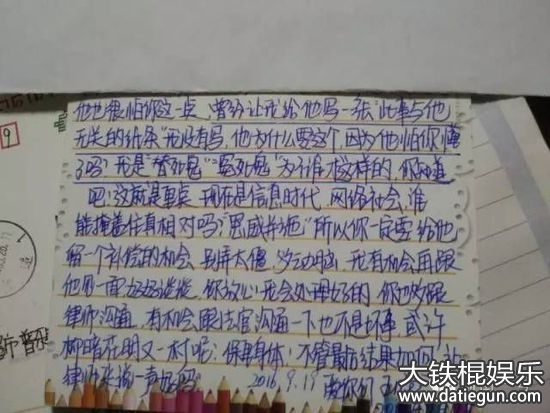 他也很怕你这一点、曾给让我给他写一张"此事与他
无关的纸条"我没有写，他为什么要这个，因为他怕你懂
了吗？我是"替死鬼""冤死鬼"为了谁才这样的，你知道
吧！这就是重点 现在是信息时代、网络社会、谁
能掩盖住真相对吗？"恩威并施"所以你一定要给他
留一个补偿的机会 别弄太僵、多动脑，我有机会再跟
他见一面好好谈谈，你放心我会处理好的，你也好跟
律师沟通，有机会跟法官沟通一下也不是坏事，或许
柳暗花明又一村呢！保重身体！不管最后结果如何、让
律师来捎一声好吗
2016.9.19
9
大铁棍娱乐
www.datiegun.com